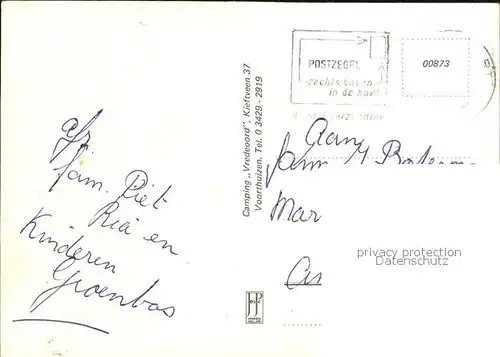 POSTZEGEL
rechts boven
in de hoek
00873
Camping „Vredeoord", Kieftveen 37
Voorthuizen. Tel. 0 3429 - 2919
afz.
fam. Piet
Ria en
Kinderen
Groenbos
Aan
fam
Mar
privacy protection
Datenschutz